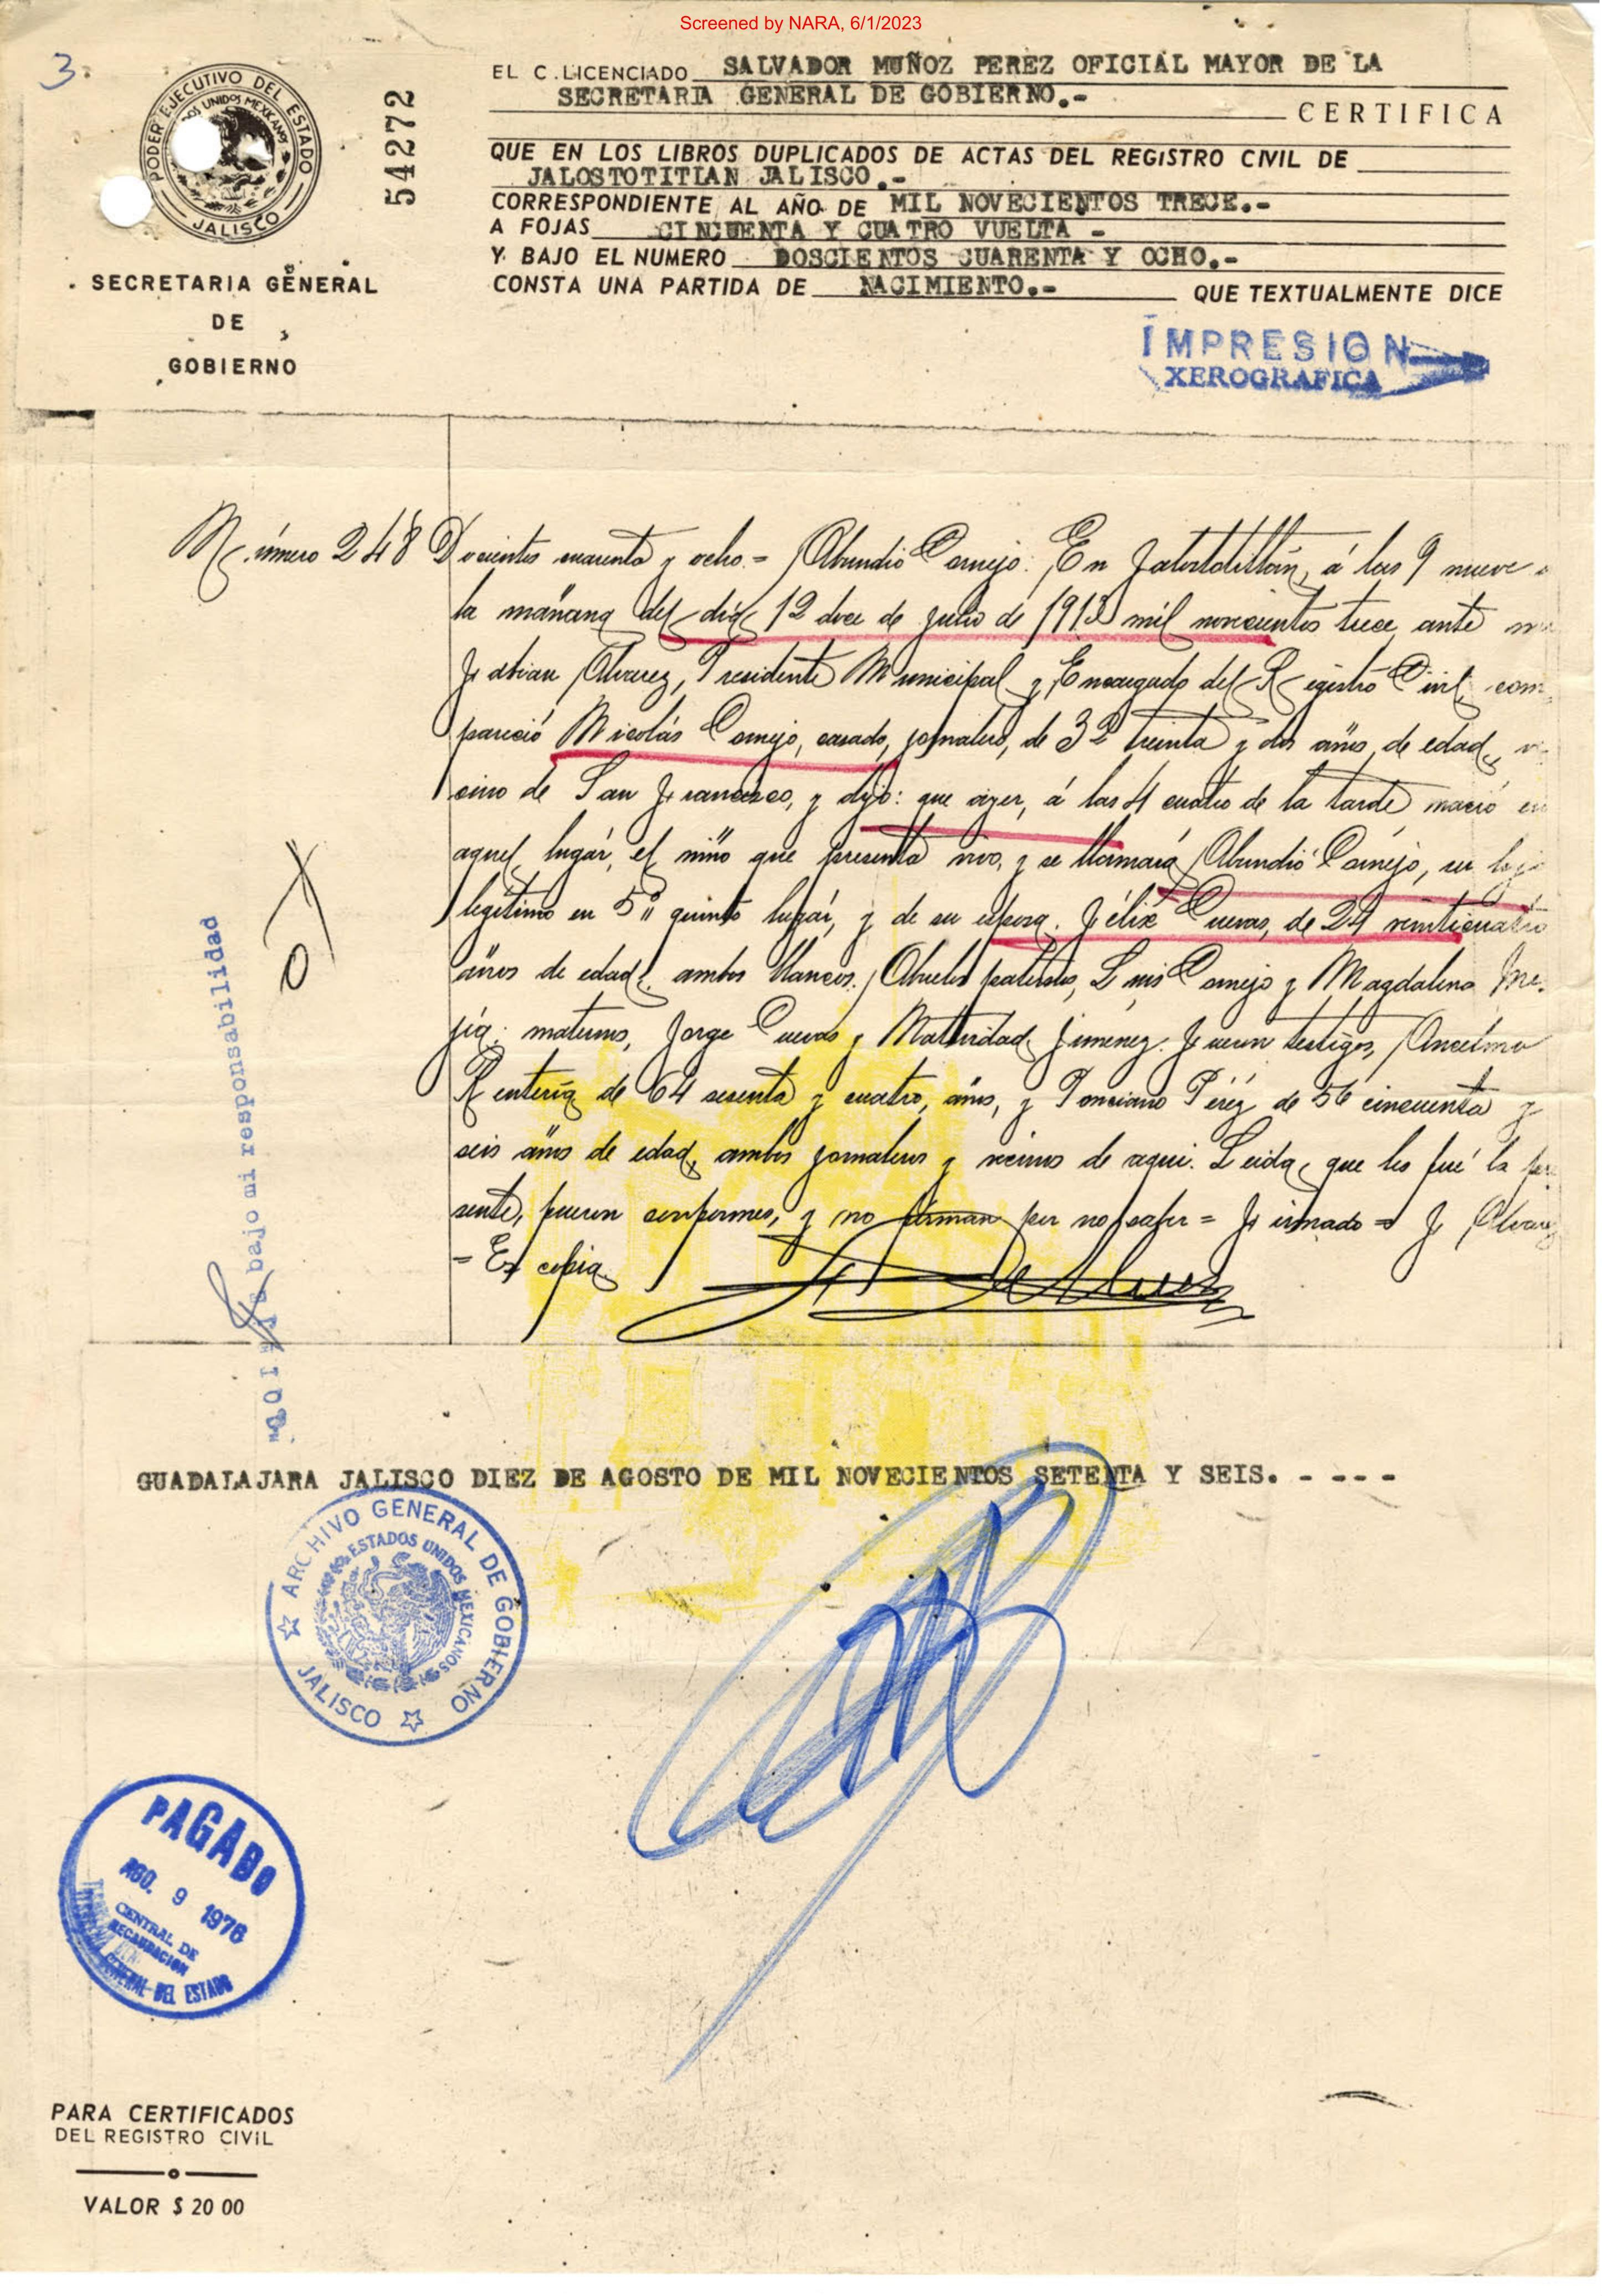 Screened by NARA, 6/1/2023
3
PODER EJECUTIVO DEL ESTADO
UNIDOS MEXICANOS
JALISCO
54272
SECRETARIA GENERAL
DE
GOBIERNO
EL C. LICENCIADO SALVADOR MUÑOZ PEREZ OFICIAL MAYOR DE LA
SECRETARIA GENERAL DE GOBIERNO.-
CERTIFICA
QUE EN LOS LIBROS DUPLICADOS DE ACTAS DEL REGISTRO CIVIL DE
JALOSTOTITLAN JALISCO.-
CORRESPONDIENTE AL AÑO DE MIL NOVECIENTOS TRECE.-
A FOJAS CINCUENTA Y CUATRO VUELTA -
Y BAJO EL NUMERO DOSCIENTOS CUARENTA Y OCHO.-
CONSTA UNA PARTIDA DE NACIMIENTO.- QUE TEXTUALMENTE DICE
IMPRESION
XEROGRAFICA
Número 248 Docientos cuarenta y ocho = Abundio Cornejo. En Jalostotitlán, á las 9 nueve
la mañana del día 12 doce de julio de 1913 mil novecientos trece, ante
Fabian Alvarez, Presidente Municipal y Encargado del Registro Civil, com
pareció Nicolás Cornejo, casado, jornalero, de 32 treinta y dos años, de edad, ve
cino de San Francisco, y dijo: que ayer, á las 4 cuatro de la tarde nació en
aquel lugar, el niño que presenta vivo, y se llamará Abundio Cornejo, su hijo
legítimo en 5º quinto lugar, y de su esposa. Félix Cuevas, de 24 veinticuatro
años de edad. ambos blancos. Abuelos paternos, Luis Cornejo y Magdalena Me-
jía: maternos, Jorge Cuevas y Natividad Jiménez. Fueron testigos, Ancelmo
Rentería de 64 sesenta y cuatro, años, y Ponciano Pérez de 56 cincuenta y
seis años de edad, ambos jornaleros y vecinos de aqui. Leida que les fué la pre
sente, fueron conformes, y no firman por no saber = Firmado = F Alvarez
= Es copia
bajo mi responsabilidad
GUADALAJARA JALISCO DIEZ DE AGOSTO DE MIL NOVECIENTOS SETENTA Y SEIS. - - - -
ARCHIVO GENERAL DE GOBIERNO
ESTADOS UNIDOS MEXICANOS
JALISCO
PAGADO
AGO. 9 1976
CENTRAL DE
RECAUDACION
GENERAL DEL ESTADO
PARA CERTIFICADOS
DEL REGISTRO CIVIL
VALOR $ 20 00